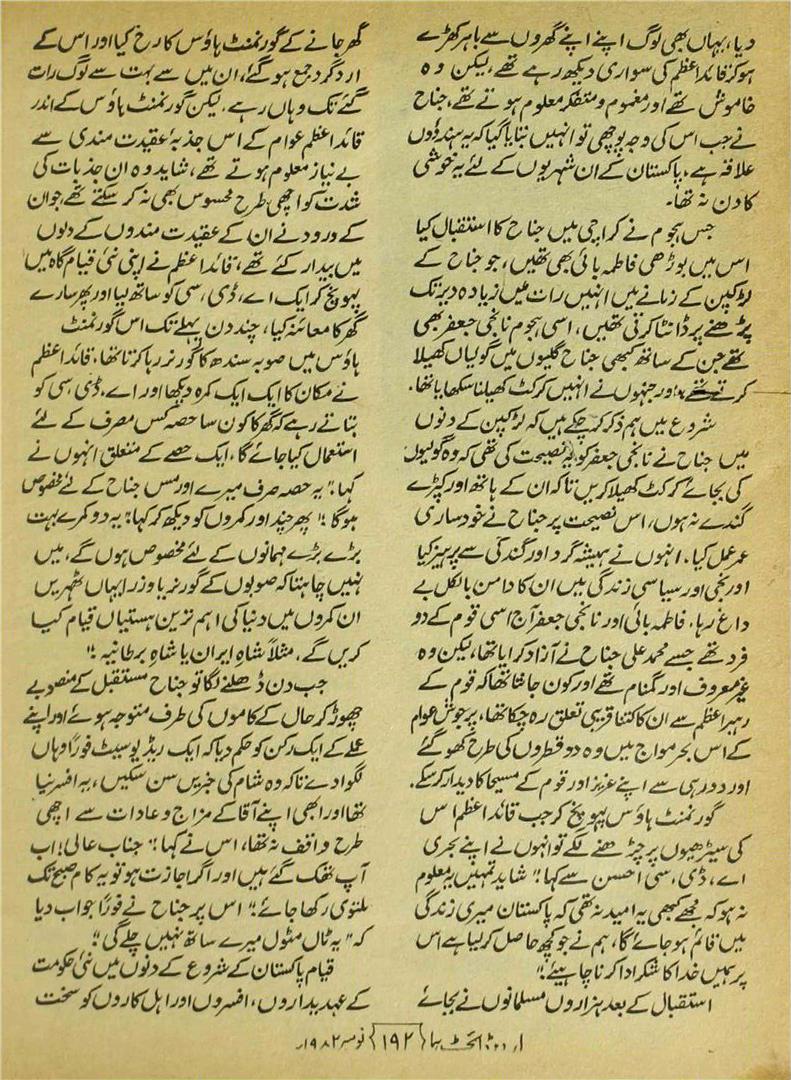 دیا، یہاں بھی لوگ اپنے اپنے گھروں سے باہر کھڑے
ہو کر قائداعظم کی سواری دیکھ رہے تھے، لیکن وہ
خاموش تھے اور مغموم و متفکر معلوم ہوتے تھے، جناح
نے جب اس کی وجہ پوچھی تو انہیں بتایا گیا کہ یہ ہندوؤں
علاقہ ہے، پاکستان کے ان شہریوں کے لئے یہ خوشی
کا دن نہ تھا۔
جس ہجوم نے کراچی میں جناح کا استقبال کیا
اس میں بوڑھی فاطمہ بائی بھی تھیں، جو جناح کے
لڑکپن کے زمانے میں انہیں رات میں زیادہ دیر تک
پڑھنے پر ڈانٹا کرتی تھیں، اسی ہجوم نانجی جعفر بھی
تھے جن کے ساتھ کبھی جناح گلیوں میں گولیاں کھیلا
کرتے تھے، اور جنہوں نے انہیں کرکٹ کھیلنا سکھایا تھا۔
شروع میں ہم ذکر کر چکے ہیں کہ لڑکپن کے دنوں
میں جناح نے نانجی جعفر کو یہ نصیحت کی تھی کہ وہ گولیوں
کی بجائے کرکٹ کھیلا کریں تاکہ ان کے ہاتھ اور کپڑے
گندے نہ ہوں، اس نصیحت پر جناح نے خود ساری
عمر عمل کیا۔ انہوں نے ہمیشہ گرد اور گندگی سے پرہیز کیا
اور نجی اور سیاسی زندگی میں ان کا دامن بالکل بے
داغ رہا، فاطمہ بائی اور نانجی جعفر آج اسی قوم کے دو
فرد تھے جسے محمد علی جناح نے آزاد کرایا تھا، لیکن وہ
غیر معروف اور گمنام تھے اور کون جانتا تھا کہ قوم کے
رہبر اعظم سے ان کا کتنا قریبی تعلق رہ چکا تھا، پرجوش عوام
کے اس بحر مواج میں وہ دو قطروں کی طرح کھو گئے
اور دور ہی سے اپنے عزیز اور قوم کے مسیحا کا دیدار کر سکے۔
گورنمنٹ ہاؤس پہونچ کر جب قائداعظم اس
کی سیڑھیوں پر چڑھنے لگے تو انہوں نے اپنے بحری
اے، ڈی، سی احسن سے کہا: "شاید تمہیں یہ معلوم
نہ ہو کہ مجھے کبھی یہ امید نہ تھی کہ پاکستان میری زندگی
میں قائم ہو جائے گا، ہم نے جو کچھ حاصل کر لیا ہے اس
پر ہمیں خدا کا شکر ادا کرنا چاہیئے"
استقبال کے بعد ہزاروں مسلمانوں نے بجائے
گھر جانے کے گورنمنٹ ہاؤس کا رخ کیا اور اس کے
ارد گرد جمع ہو گئے، ان میں سے بہت سے لوگ رات
گئے تک وہاں رہے، لیکن گورنمنٹ ہاؤس کے اندر
قائداعظم عوام کے اس جذبۂ عقیدت مندی سے
بے نیاز معلوم ہوتے تھے، شاید وہ ان جذبات کی
شدت کو اچھی طرح محسوس بھی نہ کر سکتے تھے، جو ان
کے ورود نے ان کے عقیدت مندوں کے دلوں
میں بیدار کئے تھے، قائداعظم نے اپنی نئی قیام گاہ میں
پہونچ کر ایک اے، ڈی، سی کو ساتھ لیا اور پھر سارے
گھر کا معائنہ کیا، چند دن پہلے تک اس گورنمنٹ
ہاؤس میں صوبہ سندھ کا گورنر رہا کرتا تھا، قائداعظم
نے مکان کا ایک ایک کمرہ دیکھا اور اے، ڈی سی کو
بتاتے رہے کہ گھر کا کون سا حصہ کس مصرف کے لئے
استعمال کیا جائے گا، ایک حصے کے متعلق انہوں نے
کہا: "یہ حصہ صرف میرے اور مس جناح کے لئے مخصوص
ہوگا" پھر چند اور کمروں کو دیکھ کر کہا: "یہ دو کمرے بہت
بڑے بڑے مہمانوں کے لئے مخصوص ہوں گے، میں
نہیں چاہتا کہ صوبوں کے گورنر یا وزرا یہاں ٹھہریں
ان کمروں میں دنیا کی اہم ترین ہستیاں قیام کیا
کریں گے، مثلاً شاہ ایران یا شاہ برطانیہ"
جب دن ڈھلنے لگا تو جناح مستقبل کے منصوبے
چھوڑ کر حال کے کاموں کی طرف متوجہ ہوئے اور اپنے
عملے کے ایک رکن کو حکم دیا کہ ایک ریڈیو سیٹ فوراً وہاں
لگوا دے تاکہ وہ شام کی خبریں سن سکیں، یہ افسر نیا
تھا اور ابھی اپنے آقا کے مزاج و عادات سے اچھی
طرح واقف نہ تھا، اس نے کہا: "جناب عالی! اب
آپ تھک گئے ہیں اور اگر اجازت ہو تو یہ کام صبح تک
ملتوی رکھا جائے" اس پر جناح نے فوراً جواب دیا
کہ "یہ ٹال مٹول میرے ساتھ نہیں چلے گی"
قیام پاکستان کے شروع کے دنوں میں نئی حکومت
کے عہدیداروں، افسروں اور اہل کاروں کو سخت
اردو ڈائجسٹ ہما {۱۹۲} نومبر ۱۹۸۲ء